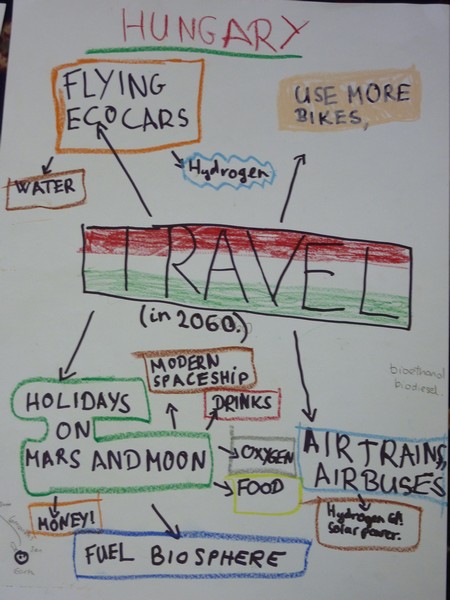 HUNGARY
FLYING
ECOCARS
USE MORE
BIKES,
WATER
Hydrogen
TRAVEL
(in 2060.)
MODERN
SPACESHIP
bioethanol
biodiesel..
HOLIDAYS
ON
MARS AND MOON
DRINKS
OXYGEN
FOOD
AIRTRAINS,
AIRBUSES
MONEY!
Hydrogen
solar power.
FUEL BIOSPHERE